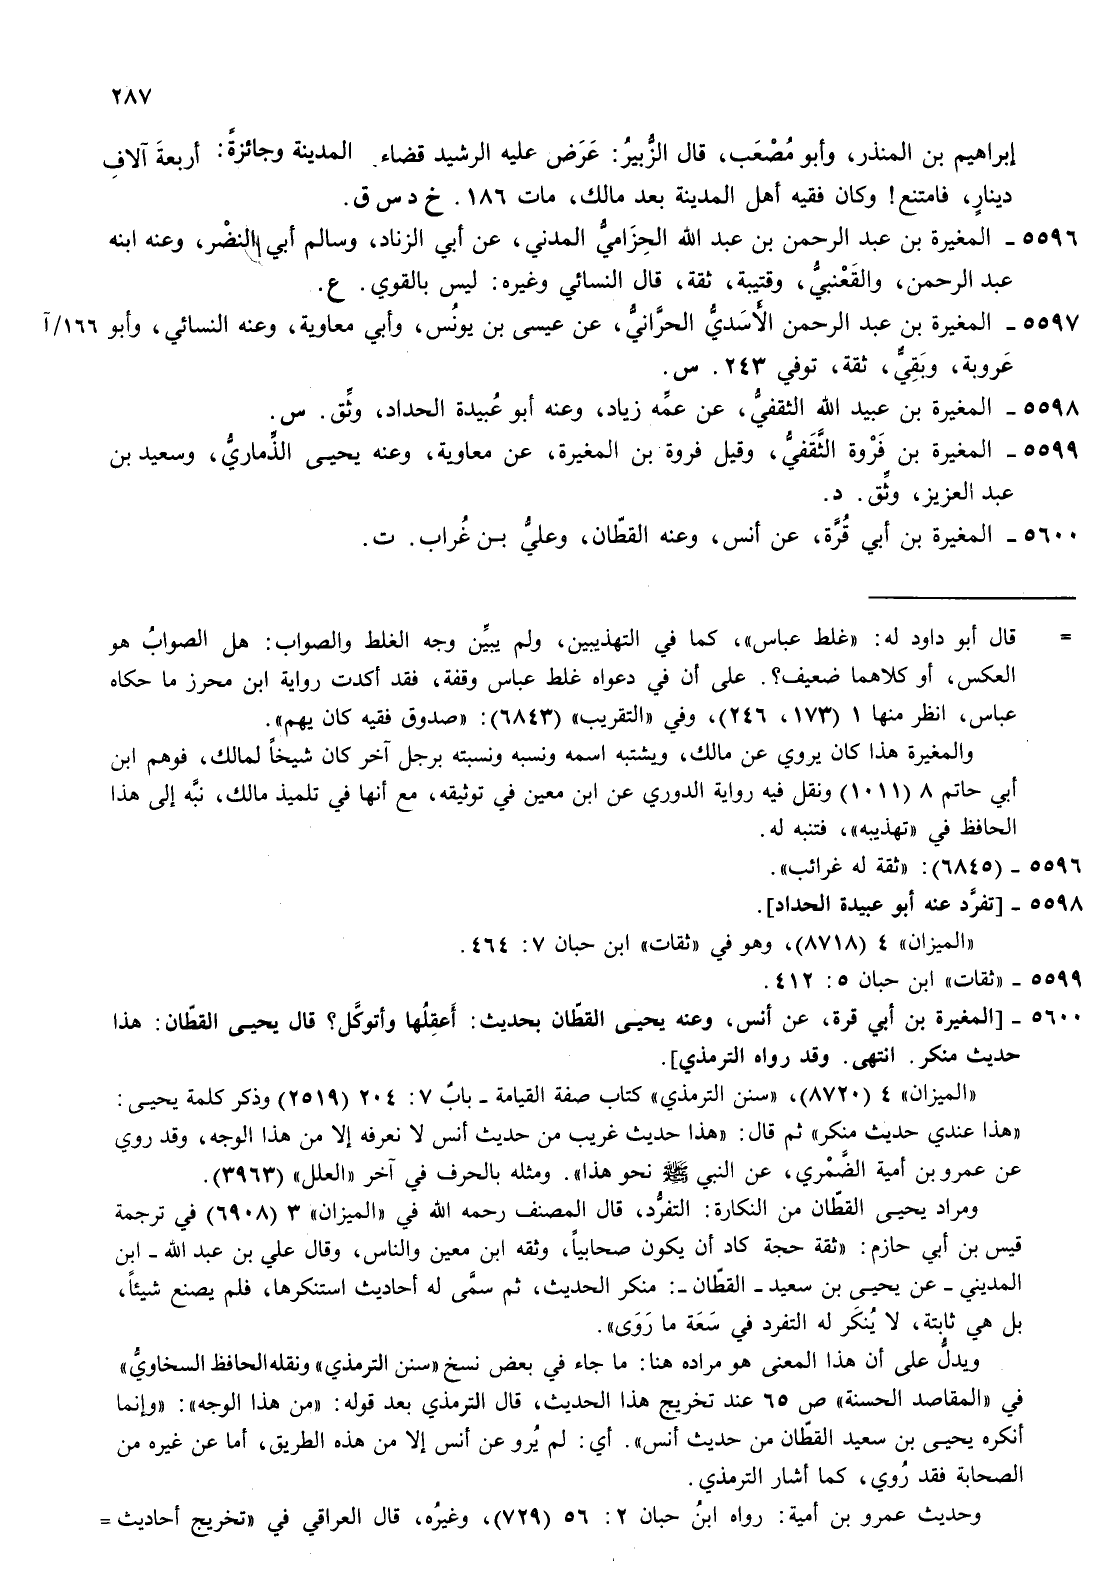 ٢٨٧
إبراهيم بن المنذر، وأبو مُصْعَب، قال الزُّبيرُ: عَرَض عليه الرشيد قضاء المدينة وجائزةً: أربعةَ آلافِ
دينارٍ، فامتنع! وكان فقيه أهل المدينة بعد مالك، مات ١٨٦. خ د س ق.
٥٥٩٦ ـ المغيرة بن عبد الرحمن بن عبد الله الحِزَاميُّ المدني، عن أبي الزناد، وسالم أبي النضْر، وعنه ابنه
عبد الرحمن، والقَعْنبيُّ، وقتيبة، ثقة، قال النسائي وغيره: ليس بالقوي. ع.
٥٥٩٧ ـ المغيرة بن عبد الرحمن الأَسَديُّ الحرَّانيُّ، عن عيسى بن يونُس، وأبي معاوية، وعنه النسائي، وأبو ١٦٦/آ
عَروبة، وبَقِيٌّ، ثقة، توفي ٢٤٣. س.
٥٥٩٨ ـ المغيرة بن عبيد الله الثقفيُّ، عن عمِّه زياد، وعنه أبو عُبيدة الحداد، وثِّق. س.
٥٥٩٩ ـ المغيرة بن فَرْوة الثَّقَفيُّ، وقيل فروة بن المغيرة، عن معاوية، وعنه يحيى الذِّماريُّ، وسعيد بن
عبد العزيز، وثِّق. د.
٥٦٠٠ ـ المغيرة بن أبي قُرَّة، عن أنس، وعنه القطّان، وعليُّ بن غُراب. ت.
= قال أبو داود له: «غلط عباس»، كما في التهذيبين، ولم يبيِّن وجه الغلط والصواب: هل الصوابُ هو
العكس، أو كلاهما ضعيف؟. على أن في دعواه غلط عباس وقفة، فقد أكدت رواية ابن محرز ما حكاه
عباس، انظر منها ١ (١٧٣، ٢٤٦)، وفي «التقريب» (٦٨٤٣): «صدوق فقيه كان يهم».
والمغيرة هذا كان يروي عن مالك، ويشتبه اسمه ونسبه ونسبته برجل آخر كان شيخاً لمالك، فوهم ابن
أبي حاتم ٨ (١٠١١) ونقل فيه رواية الدوري عن ابن معين في توثيقه، مع أنها في تلميذ مالك، نبَّه إلى هذا
الحافظ في «تهذيبه»، فتنبه له.
٥٥٩٦ ـ (٦٨٤٥): «ثقة له غرائب».
٥٥٩٨ ـ [تفرَّد عنه أبو عبيدة الحداد].
«الميزان» ٤ (٨٧١٨)، وهو في «ثقات» ابن حبان ٧: ٤٦٤.
٥٥٩٩ ـ «ثقات» ابن حبان ٥: ٤١٢.
٥٦٠٠ ـ [المغيرة بن أبي قرة، عن أنس، وعنه يحيى القطّان بحديث: أَعقِلُها وأتوكَّل؟ قال يحيى القطّان: هذا
حديث منكر. انتهى. وقد رواه الترمذي].
«الميزان» ٤ (٨٧٢٠)، «سنن الترمذي» كتاب صفة القيامة ـ بابٌ ٧: ٢٠٤ (٢٥١٩) وذكر كلمة يحيى:
«هذا عندي حديث منكر» ثم قال: «هذا حديث غريب من حديث أنس لا نعرفه إلا من هذا الوجه، وقد روي
عن عمرو بن أمية الضَّمْري، عن النبي ﷺ نحو هذا». ومثله بالحرف في آخر «العلل» (٣٩٦٣).
ومراد يحيى القطّان من النكارة: التفرُّد، قال المصنف رحمه الله في «الميزان» ٣ (٦٩٠٨) في ترجمة
قيس بن أبي حازم: «ثقة حجة كاد أن يكون صحابياً، وثقه ابن معين والناس، وقال علي بن عبد الله ـ ابن
المديني ـ عن يحيى بن سعيد ـ القطّان ـ: منكر الحديث، ثم سمَّى له أحاديث استنكرها، فلم يصنع شيئاً،
بل هي ثابتة، لا يُنكَر له التفرد في سَعَة ما رَوَى».
ويدلُّ على أن هذا المعنى هو مراده هنا: ما جاء في بعض نسخ «سنن الترمذي» ونقله الحافظ السخاويُّ
في «المقاصد الحسنة» ص ٦٥ عند تخريج هذا الحديث، قال الترمذي بعد قوله: «من هذا الوجه»: «وإنما
أنكره يحيى بن سعيد القطّان من حديث أنس». أي: لم يُرو عن أنس إلا من هذه الطريق، أما عن غيره من
الصحابة فقد رُوي، كما أشار الترمذي.
وحديث عمرو بن أمية: رواه ابنُ حبان ٢: ٥٦ (٧٢٩)، وغيرُه، قال العراقي في «تخريج أحاديث =